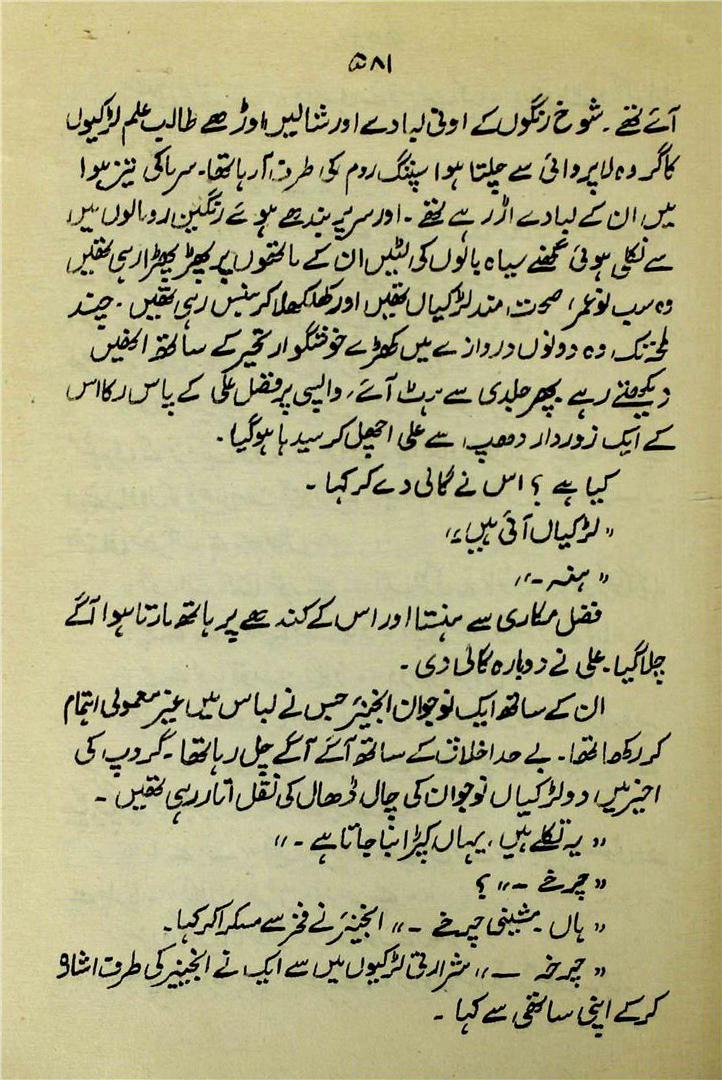 ۵۸۱
آئے تھے ۔ شوخ رنگوں کے اونی لبادے اور شالیں اوڑھے طالب علم لڑکیوں
کا گروہ لاپروائی سے چلتا ہوا سپننگ روم کی طرف آ رہا تھا۔ سرما کی تیز ہوا
میں ان کے لبادے اڑ رہے تھے ۔ اور سر پر بندھے ہوئے رنگین رومالوں میں
سے نکلی ہوئی گھنے سیاہ بالوں کی لٹیں ان کے ماتھوں پر پھڑ پھڑا رہی تھیں
وہ سب نو عمر، صحت مند لڑکیاں تھیں اور کھلکھلا کر ہنس رہی تھیں ۔ چند
لحظے تک وہ دونوں دروازے میں کھڑے خوشگوار تحیر کے ساتھ انھیں
دیکھتے رہے پھر جلدی سے ہٹ آئے، واپسی پر فضل علی کے پاس رکا اس
کے ایک زور دار دھپ سے علی اچھل کر سیدھا ہو گیا ۔
کیا ہے ؟ اس نے گالی دے کر کہا ۔
" لڑکیاں آئی ہیں۔"
" ہنہ ۔"
فضل مکاری سے ہنستا اور اس کے کندھے پر ہاتھ مارتا ہوا آگے
چلا گیا۔ علی نے دوبارہ گالی دی ۔
ان کے ساتھ ایک نوجوان انجینئر جس نے لباس میں غیر معمولی اہتمام
کر رکھا تھا۔ بے حد اخلاق کے ساتھ آگے آگے چل رہا تھا ۔ گروپ کی
اخیر میں دو لڑکیاں نوجوان کی چال ڈھال کی نقل اتار رہی تھیں ۔
" یہ تکلے ہیں، یہاں کپڑا بنا جاتا ہے ۔"
" چرخے ۔" ؟
" ہاں ۔ مشینی چرخے ۔" انجینئر نے فخر سے مسکرا کر کہا۔
" چرخہ —" شرارتی لڑکیوں میں سے ایک نے انجینئر کی طرف اشارہ
کر کے اپنی ساتھی سے کہا ۔